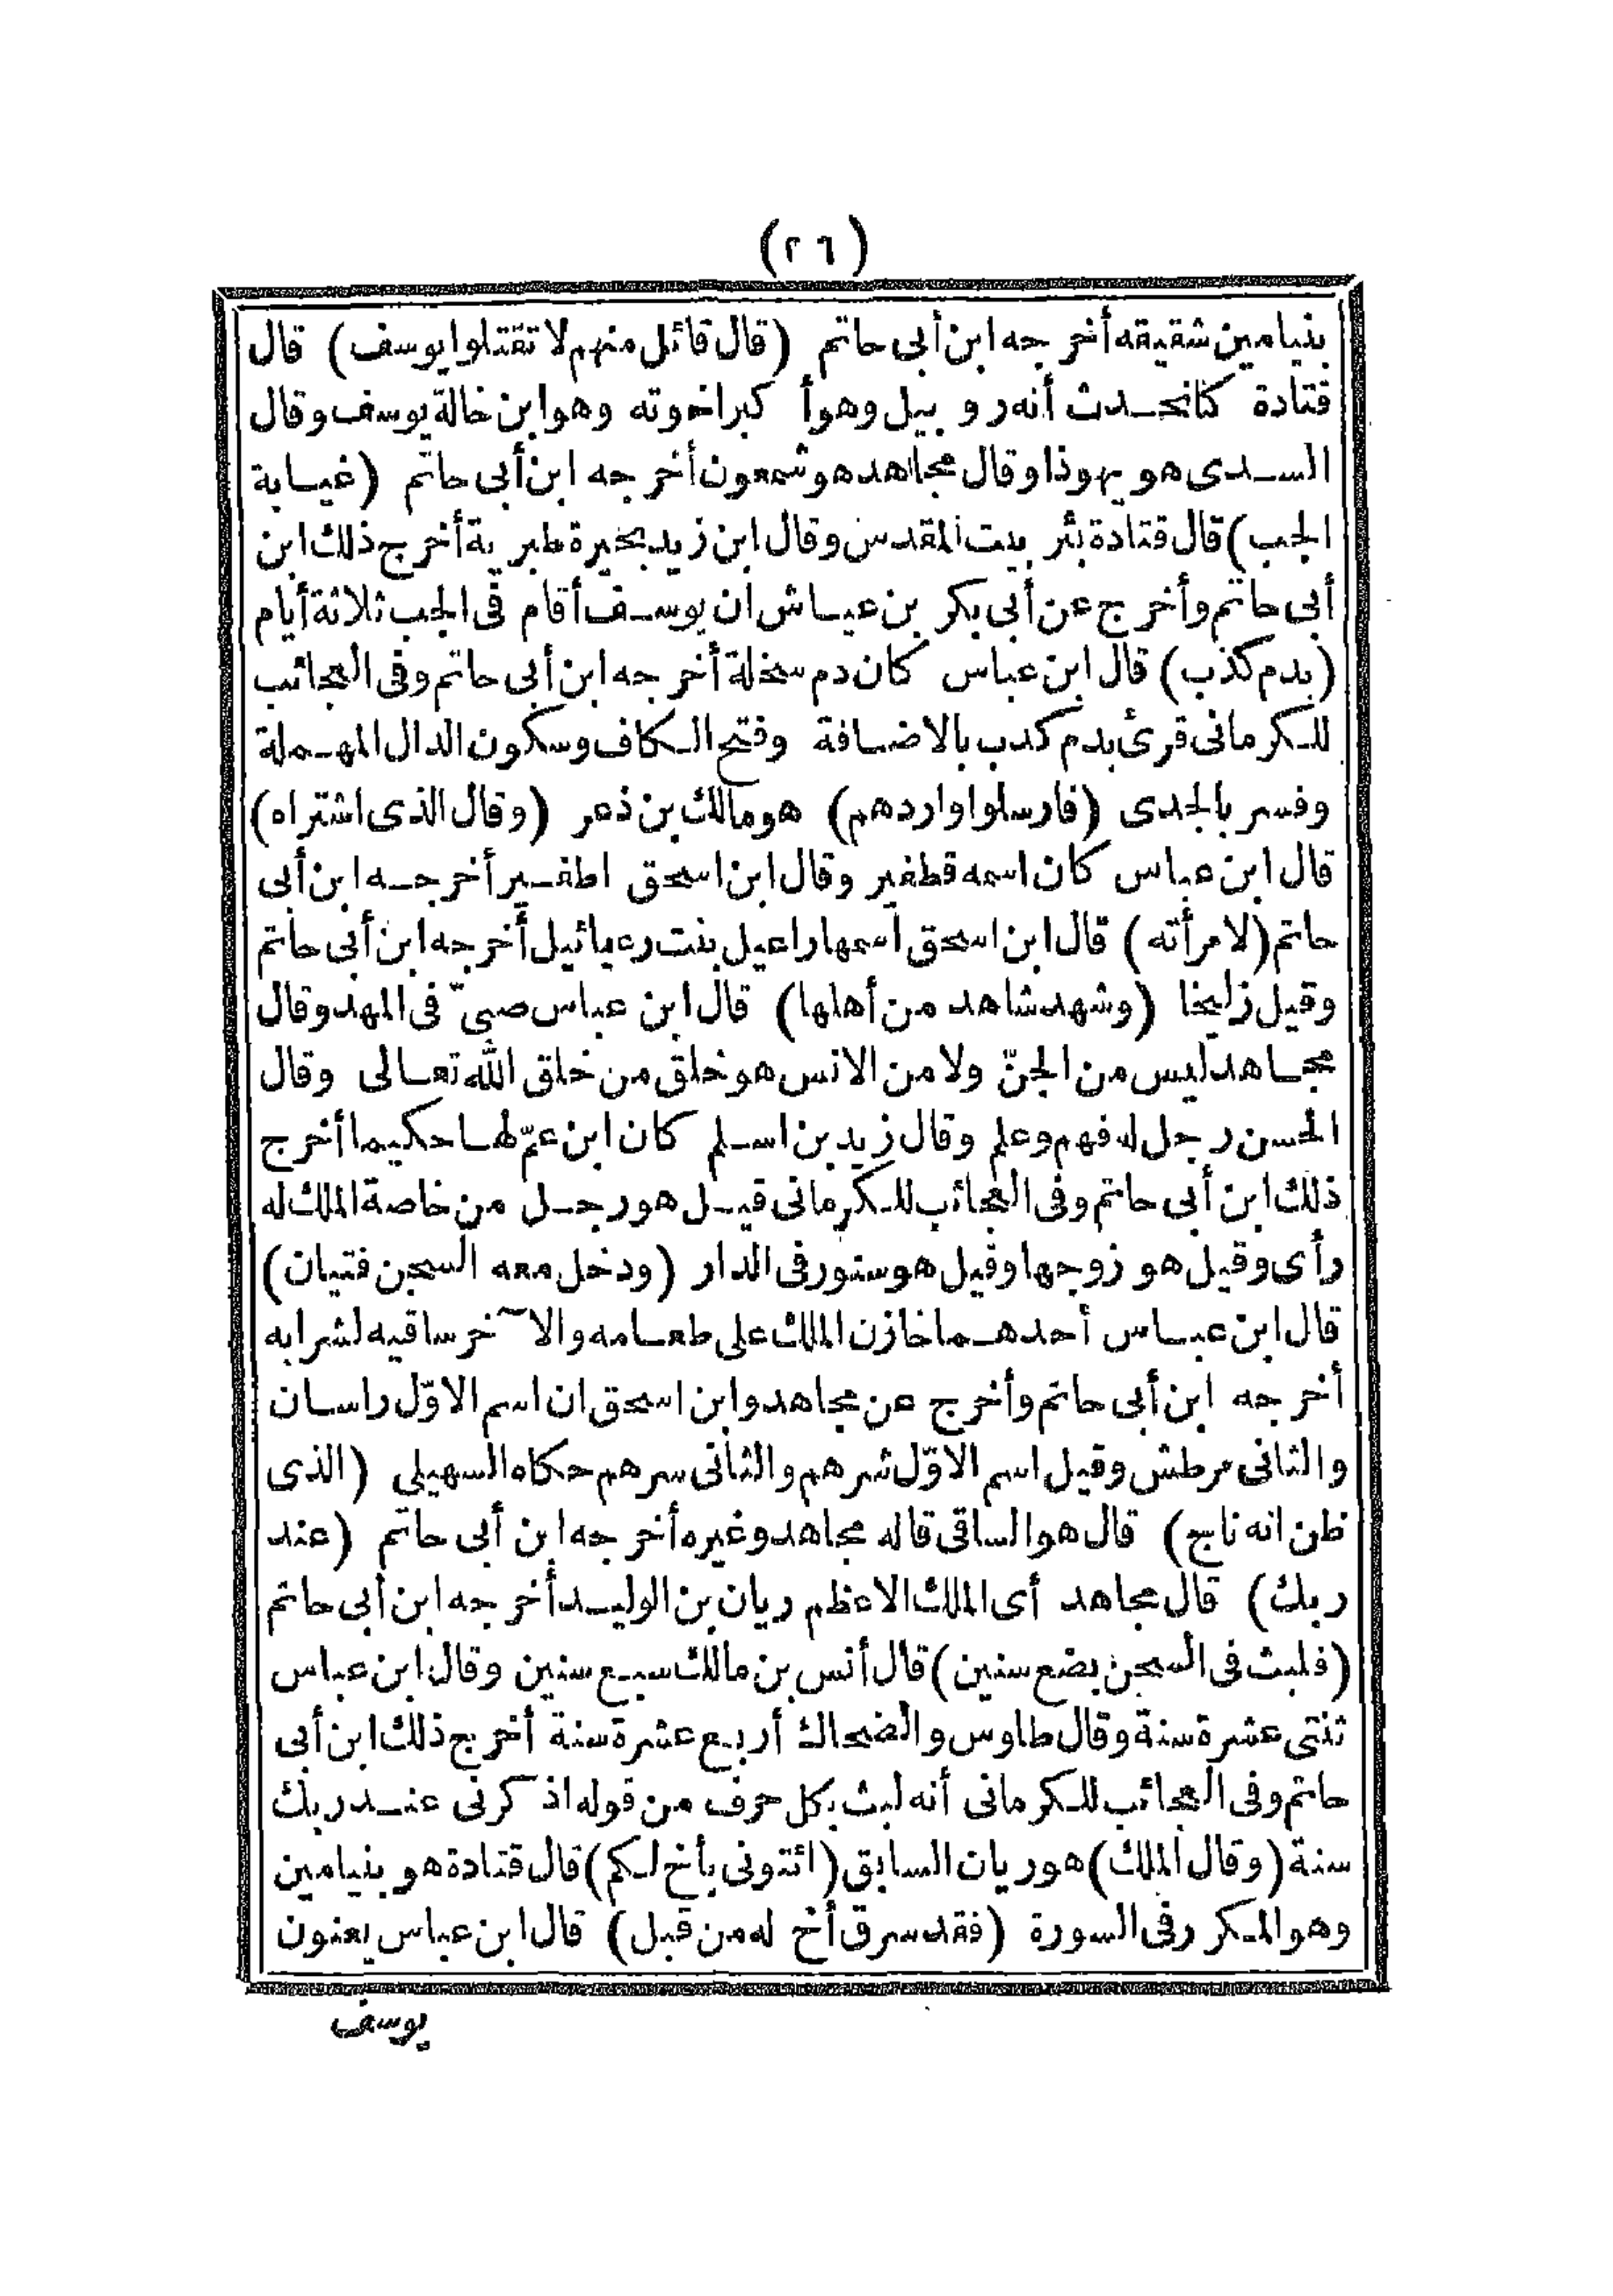 (٢٦)
بنيامين شقيقه أخرجه ابن أبى حاتم (قال قائل منهم لا تقتلوا يوسف) قال
قتادة كنا نحدث أنه روبيل وهو أكبر اخوته وهو ابن خالة يوسف وقال
السدى هو يهوذا وقال مجاهد هو شمعون أخرجه ابن أبى حاتم (غيابة
الجب) قال قتادة بئر ببيت المقدس وقال ابن زيد بحيرة طبرية أخرج ذلك ابن
أبى حاتم وأخرج عن أبى بكر بن عياش ان يوسف أقام فى الجب ثلاثة أيام
(بدم كذب) قال ابن عباس كان دم سخلة أخرجه ابن أبى حاتم وفى العجائب
للكرمانى قرئ بدم كدب بالاضافة وفتح الكاف وسكون الدال المهملة
وفسر بالجدى (فارسلوا واردهم) هو مالك بن ذعر (وقال الذى اشتراه)
قال ابن عباس كان اسمه قطفير وقال ابن اسحق اطفير أخرجه ابن أبى
حاتم (لامرأته) قال ابن اسحق اسمها راعيل بنت رعيائيل أخرجه ابن أبى حاتم
وقيل زليخا (وشهد شاهد من أهلها) قال ابن عباس صبىّ فى المهد وقال
مجاهد ليس من الجنّ ولا من الانس هو خلق من خلق الله تعالى وقال
الحسن رجل له فهم وعلم وقال زيد بن اسلم كان ابن عمّ لها حكيما أخرج
ذلك ابن أبى حاتم وفى العجائب للكرمانى قيل هو رجل من خاصة الملك له
رأى وقيل هو زوجها وقيل هو سنور فى الدار (ودخل معه السجن فتيان)
قال ابن عباس أحدهما خازن الملك على طعامه والآخر ساقيه لشرابه
أخرجه ابن أبى حاتم وأخرج عن مجاهد وابن اسحق ان اسم الاوّل راسان
والثانى مرطش وقيل اسم الاوّل شرهم والثانى سرهم حكاه السهيلى (الذى
ظن انه ناج) قال هو الساقى قاله مجاهد وغيره أخرجه ابن أبى حاتم (عند
ربك) قال مجاهد أى الملك الاعظم ريان بن الوليد أخرجه ابن أبى حاتم
(فلبث فى السجن بضع سنين) قال أنس بن مالك سبع سنين وقال ابن عباس
ثنتى عشرة سنة وقال طاوس والضحاك أربع عشرة سنة أخرج ذلك ابن أبى
حاتم وفى العجائب للكرمانى أنه لبث بكل حرف من قوله اذكرنى عند ربك
سنة (وقال الملك) هو ريان السابق (ائتونى بأخ لكم) قال قتادة هو بنيامين
وهو المكرر فى السورة (فقد سرق أخ له من قبل) قال ابن عباس يعنون
يوسف